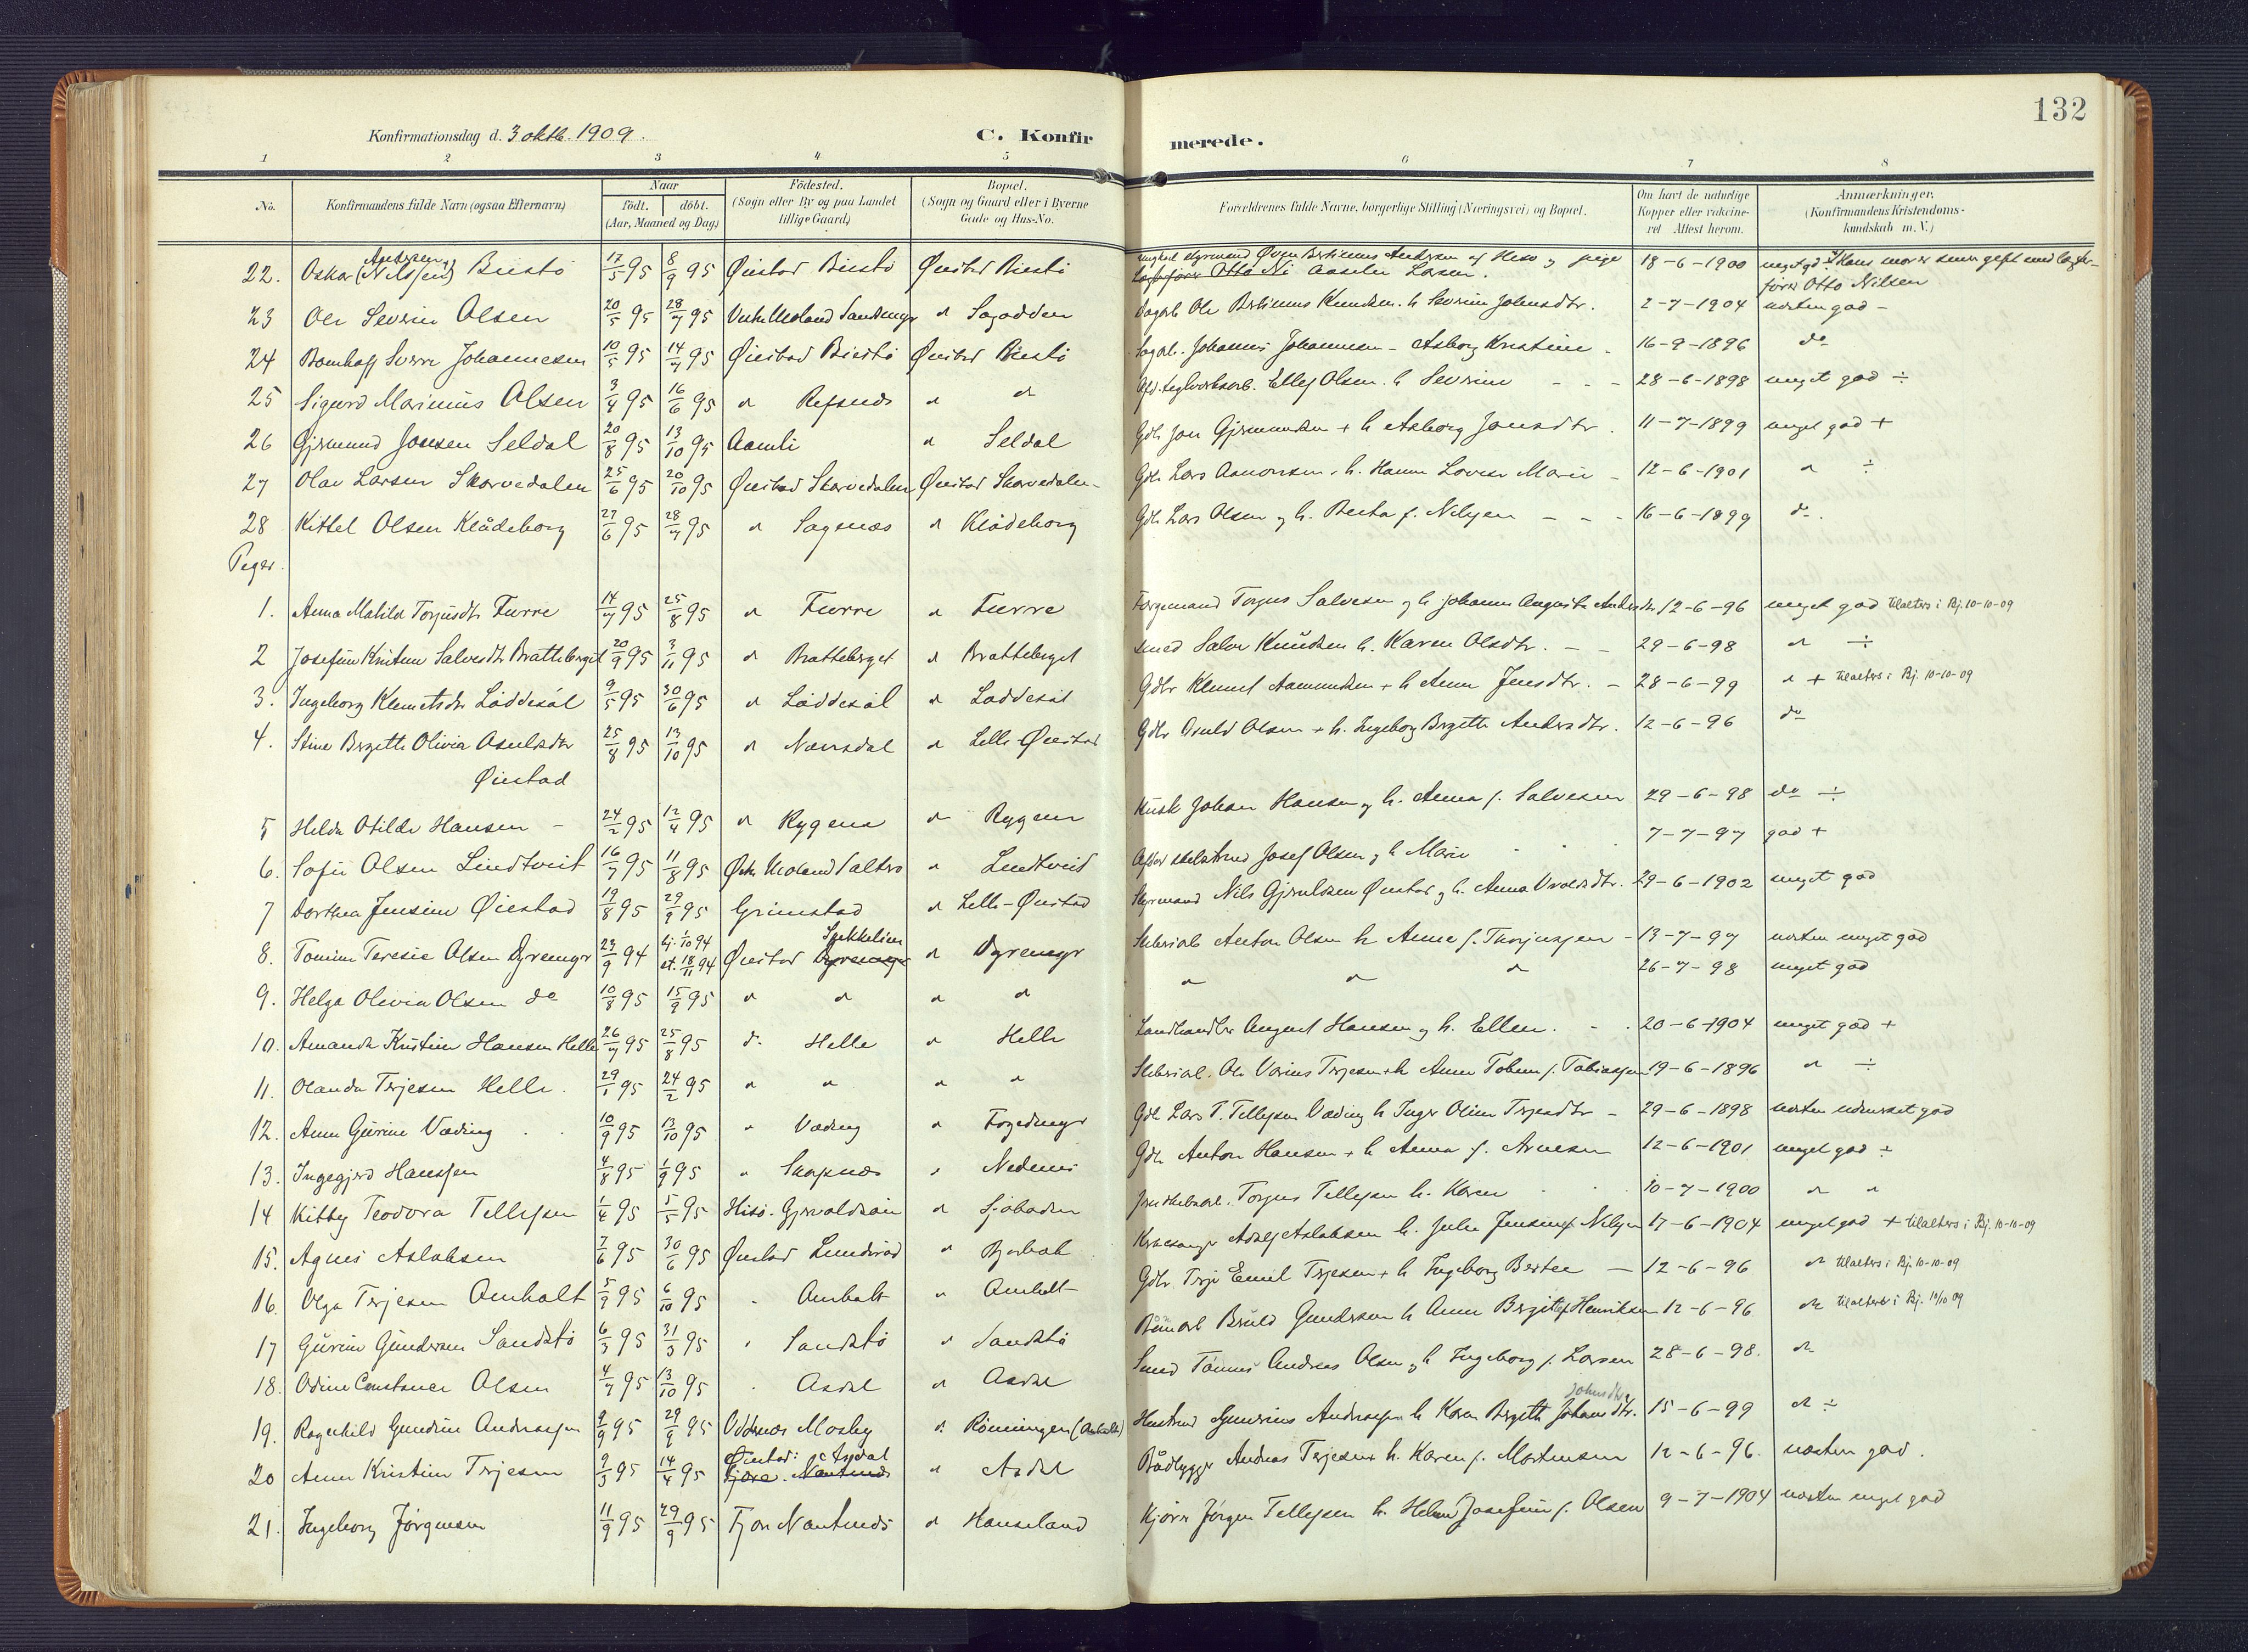 132
Konfirmationsdag d. 3 oktb. 1909.
C. Konfirmerede.
1 2 3 4 5 6 7 8
No.
Konfirmandens fulde Navn (ogsaa Efternavn)
Naar
födt. döbt.
(Aar, Maaned og Dag)
Födested.
(Sogn eller By og paa Landet tillige Gaard)
Bopæl.
(Sogn og Gaard eller i Byerne Gade og Hus-No.
Forældrenes fulde Navne, borgerlige Stilling (Næringsvei) og Bopæl.
Om havt de naturlige Kopper eller vakcineret Attest herom.
Anmærkninger.
(Konfirmandens Kristendomskundskab m. V.)
22. Oskar Andersen (Nilssen) Biestö 17/5 95 8/9 95 Øiestad Biestö Øiestad Biestö 18-6-1900 Otto Nilsen
23 Ole Severin Olsen 20/5 95 28/7 95 " Sagodden Sagarb. Ole Bertinius Knudsen h. Severine Johnsdtr. 2-7-1904 næsten god -
24 Sverre Johannesen 10/5 95 14/7 95 Øiestad Biestö Øiestad Biestö Sagarb. Johannes Johannesen - Asborg Kristine - 16-9-1896 do
25 Sigurd Marinius Olsen 3/4 95 16/6 95 " Refsnes " " Ellef Olsen h. Severine - - - 28-6-1898 meget god ÷
26 Gjermund Jonsen Seldal 20/8 95 13/10 95 Aamli " Seldal Gdr. Jon Gjermundsen + h. Asborg Jonsdtr. 11-7-1899 meget god +
27 Olav Larsen Skarvedalen 25/6 95 20/10 95 Øiestad Skarvedalen Øiestad Skarvedalen Gdr. Lars Aanonsen h. Hanna Lovise Marie - 12-6-1901 " ÷
28 Kittel Olsen Klådeborg 27/6 95 28/7 95 " Sagenæs " Klådeborg Gdr. Lars Olsen og h. Berta f. Nilssen - - - 16-6-1899 do.
Piger.
1. Anna Matilde Torjusdtr Furre 14/7 95 25/8 95 " Furre " Furre Færgemand Torjus Salvesen og h. Johanne Auguste 12-6-96 meget god tilalters i Bj. 10-10-09
2 Josefine Kristine Salvesdtr Bratteberget 20/9 95 3/11 95 " Bratteberget " Bratteberget Smed Salve Knudsen h. Karen Olsdtr. - - 29-6-98 " ÷
3. Ingeborg Klemetsdtr Löddesöl 9/5 95 30/6 95 " Löddesöl " Löddesöl Gdbr Klemet Aamundsen + h. Anne Jensdtr. - 28-6-99 " + tilalters i Bj. 10-10-09
4. Stine Bergitte Olivia Osuldsdtr Øiestad 25/8 95 13/10 95 " Nævesdal " Lille Øiestad Gdbr Osuld Olsen + h. Ingeborg Birgitte Andersdtr. 12-6-96 do
5 Helda Otilde Hansen - 24/2 95 12/4 95 " Rygene " Rygene Kusk Johan Hansen og h. Anna f. Salvesen 29-6-98 do ÷
6. Sofie Olsen Lindtveit 16/7 95 11/8 95 " Lindtveid Josef Olsen og h. Marie 7-7-97 god +
7 Dorthea Jensine Øiestad 19/8 95 29/9 95 Grimstad " Lille-Øiestad Styrmand Nils Gjeruldsen Øiestad og h. Anna 29-6-1902 meget god
8. Tomine Teresie Olsen Dyremyr 23/9 94 hj. 1/10 94 st. 18/11 94 Øiestad Dyremyr " Dyremyr Anton Olsen h. Anne f. Thorjussen - 13-7-97 næsten meget god
9. Helga Olivia Olsen do 10/8 95 15/9 95 " " " " " " " 26-7-98 meget god
10. Amanda Kristine Hansen Helle 26/7 95 25/8 95 do Helle " Helle Landhandler August Hansen og h. Ellen. - . 20-6-1904 meget god +
11. Olanda Terjesen Helle. 29/1 95 24/2 95 " " " " Ole Terjesen + h. Anne f. Tobiassen 19-6-1896 " ÷
12. Anne Gurine Væding . . 10/9 95 13/10 95 " Væding " Fogedmyr Gdr. Lars T. Tellefsen Væding h. Inger Oline Terjesdtr - 29-6-1898 næsten udmerket god
13. Ingegjerd Hanssen 4/8 95 1/9 95 " " Nedenes Gdr. Anton Hansen + h. Anna f. Arnesen 12-6-1901 meget god ÷
14 Kitty Teodora Tellefsen 1/4 95 5/5 95 Hisö. " Sjöboden Torjus Tellefsen h. Karen 10-7-1900 " "
15. Agnes Aslaksen 7/6 95 30/6 95 Øiestad " Bjorbæk Adolf Aslaksen h. Julie Jensine f. Nilssen 17-6-1904 meget god + tilalters i Bj. 10-10-09
16. Olga Terjesen Omholt 5/9 95 6/10 95 " Omholt " Omholt Gdbr. Terje Emil Terjesen + h. Ingeborg Bertea - 12-6-96 " tilalters i Bj. 10-10-09
17 Gurine Gundersen Sandstö 6/3 95 31/3 95 " Sandstö " Sandstö Gundersen h. Anne Bergitte f. Henriksen 12-6-96 do tilalters i Bj. 10/10 09
18. Odine Constance Olsen 4/7 95 13/10 95 . Asdal " Asdal Smed Tönnes Andreas Olsen og h. Ingeborg f. Larsen 28-6-98. do
19. Ragnhild Gundine Andreassen 9/9 95 29/9 95 Oddernes Mosby do Rönningen (Omholt) Andreassen h. Karen Birgitte Johansdtr. Johnsdtr? 15-6-99 do ÷
20 Anne Kristine Terjesen 9/3 95 14/4 95 Øiestad: Asdal " Asdal Bådbygger Andreas Terjesen + h. Karen f. Mortensen 12-6-96. næsten god.
21. Ingeborg Jörgensen 11/9 95 29/9 95 " Hauseland Jörgen Tellefsen h. Helene Josefine f. Olsen 9-7-1904 næsten meget god